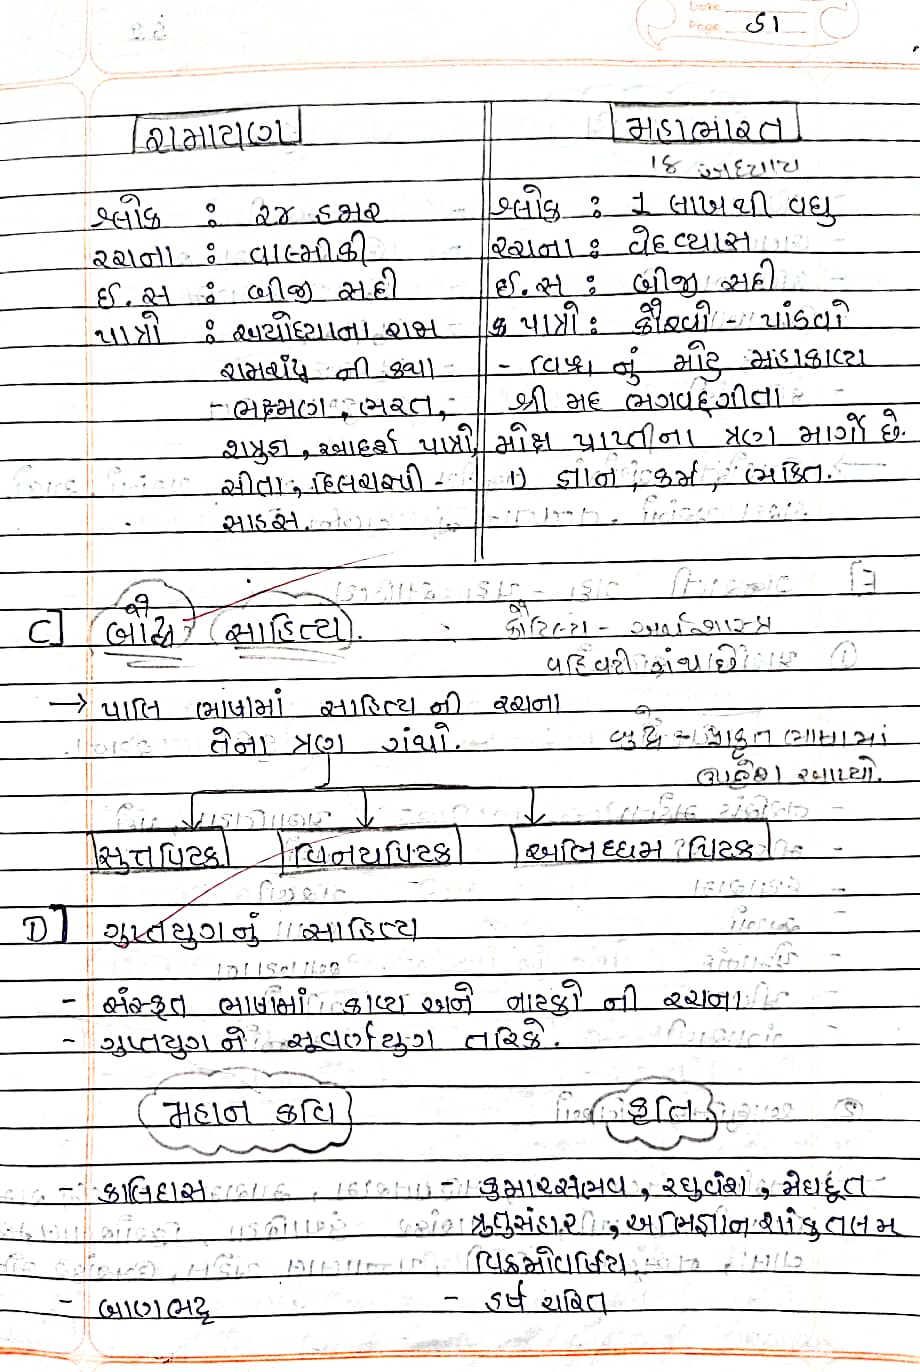 Date
Page 51
રામાયણ
શ્લોક : ૨૪ હજાર
રચના : વાલ્મીકી
ઈ.સ : બીજી સદી
પાત્રો : અયોધ્યાના રામ
રામચંદ્ર ની કથા
- લક્ષ્મણ, ભરત,
શત્રુઘ્ન, આદર્શ પાત્રો,
સીતા, દિલચસ્પી -
સાહસ.
મહાભારત
૧૮ અધ્યાય
શ્લોક : 1 લાખથી વધુ
રચના : વેદવ્યાસ
ઈ.સ : બીજી સદી
પાત્રો : કૌરવો - પાંડવો
- વિશ્વ નું મોટુ મહાકાવ્ય
શ્રી મદ ભગવદ્ગીતા
મોક્ષ પ્રાપ્તીના ત્રણ માર્ગો છે.
1) જ્ઞાન, કર્મ, ભકિત.
C] બૌદ્ધ સાહિત્ય.
કૌટિલ્ય - અર્થશાસ્ત્ર
વહિવટી ગ્રંથ છે
→ પાલિ ભાષામાં સાહિત્ય ની રચના
તેના ત્રણ ગ્રંથો.
બુદ્ધે - પ્રાકૃત ભાષામાં
ઉપદેશ આપ્યો.
સુત્તપિટક વિનયપિટક અભિધ્ધમ પિટક
D] ગુપ્તયુગનું સાહિત્ય
- સંસ્કૃત ભાષામાં કાવ્ય અને નાટકો ની રચના
- ગુપ્તયુગ ને સૂવર્ણયુગ તરિકે.
મહાન કવિ કૃતિ
- કાલિદાસ - કુમારસંભવ, રઘુવંશ, મેઘદૂત
ઋુતુસંહાર, અભિજ્ઞાન શાંકુતલમ
વિક્રમોવર્ષિય.
- બાણભટ્ટ - હર્ષ ચરિત